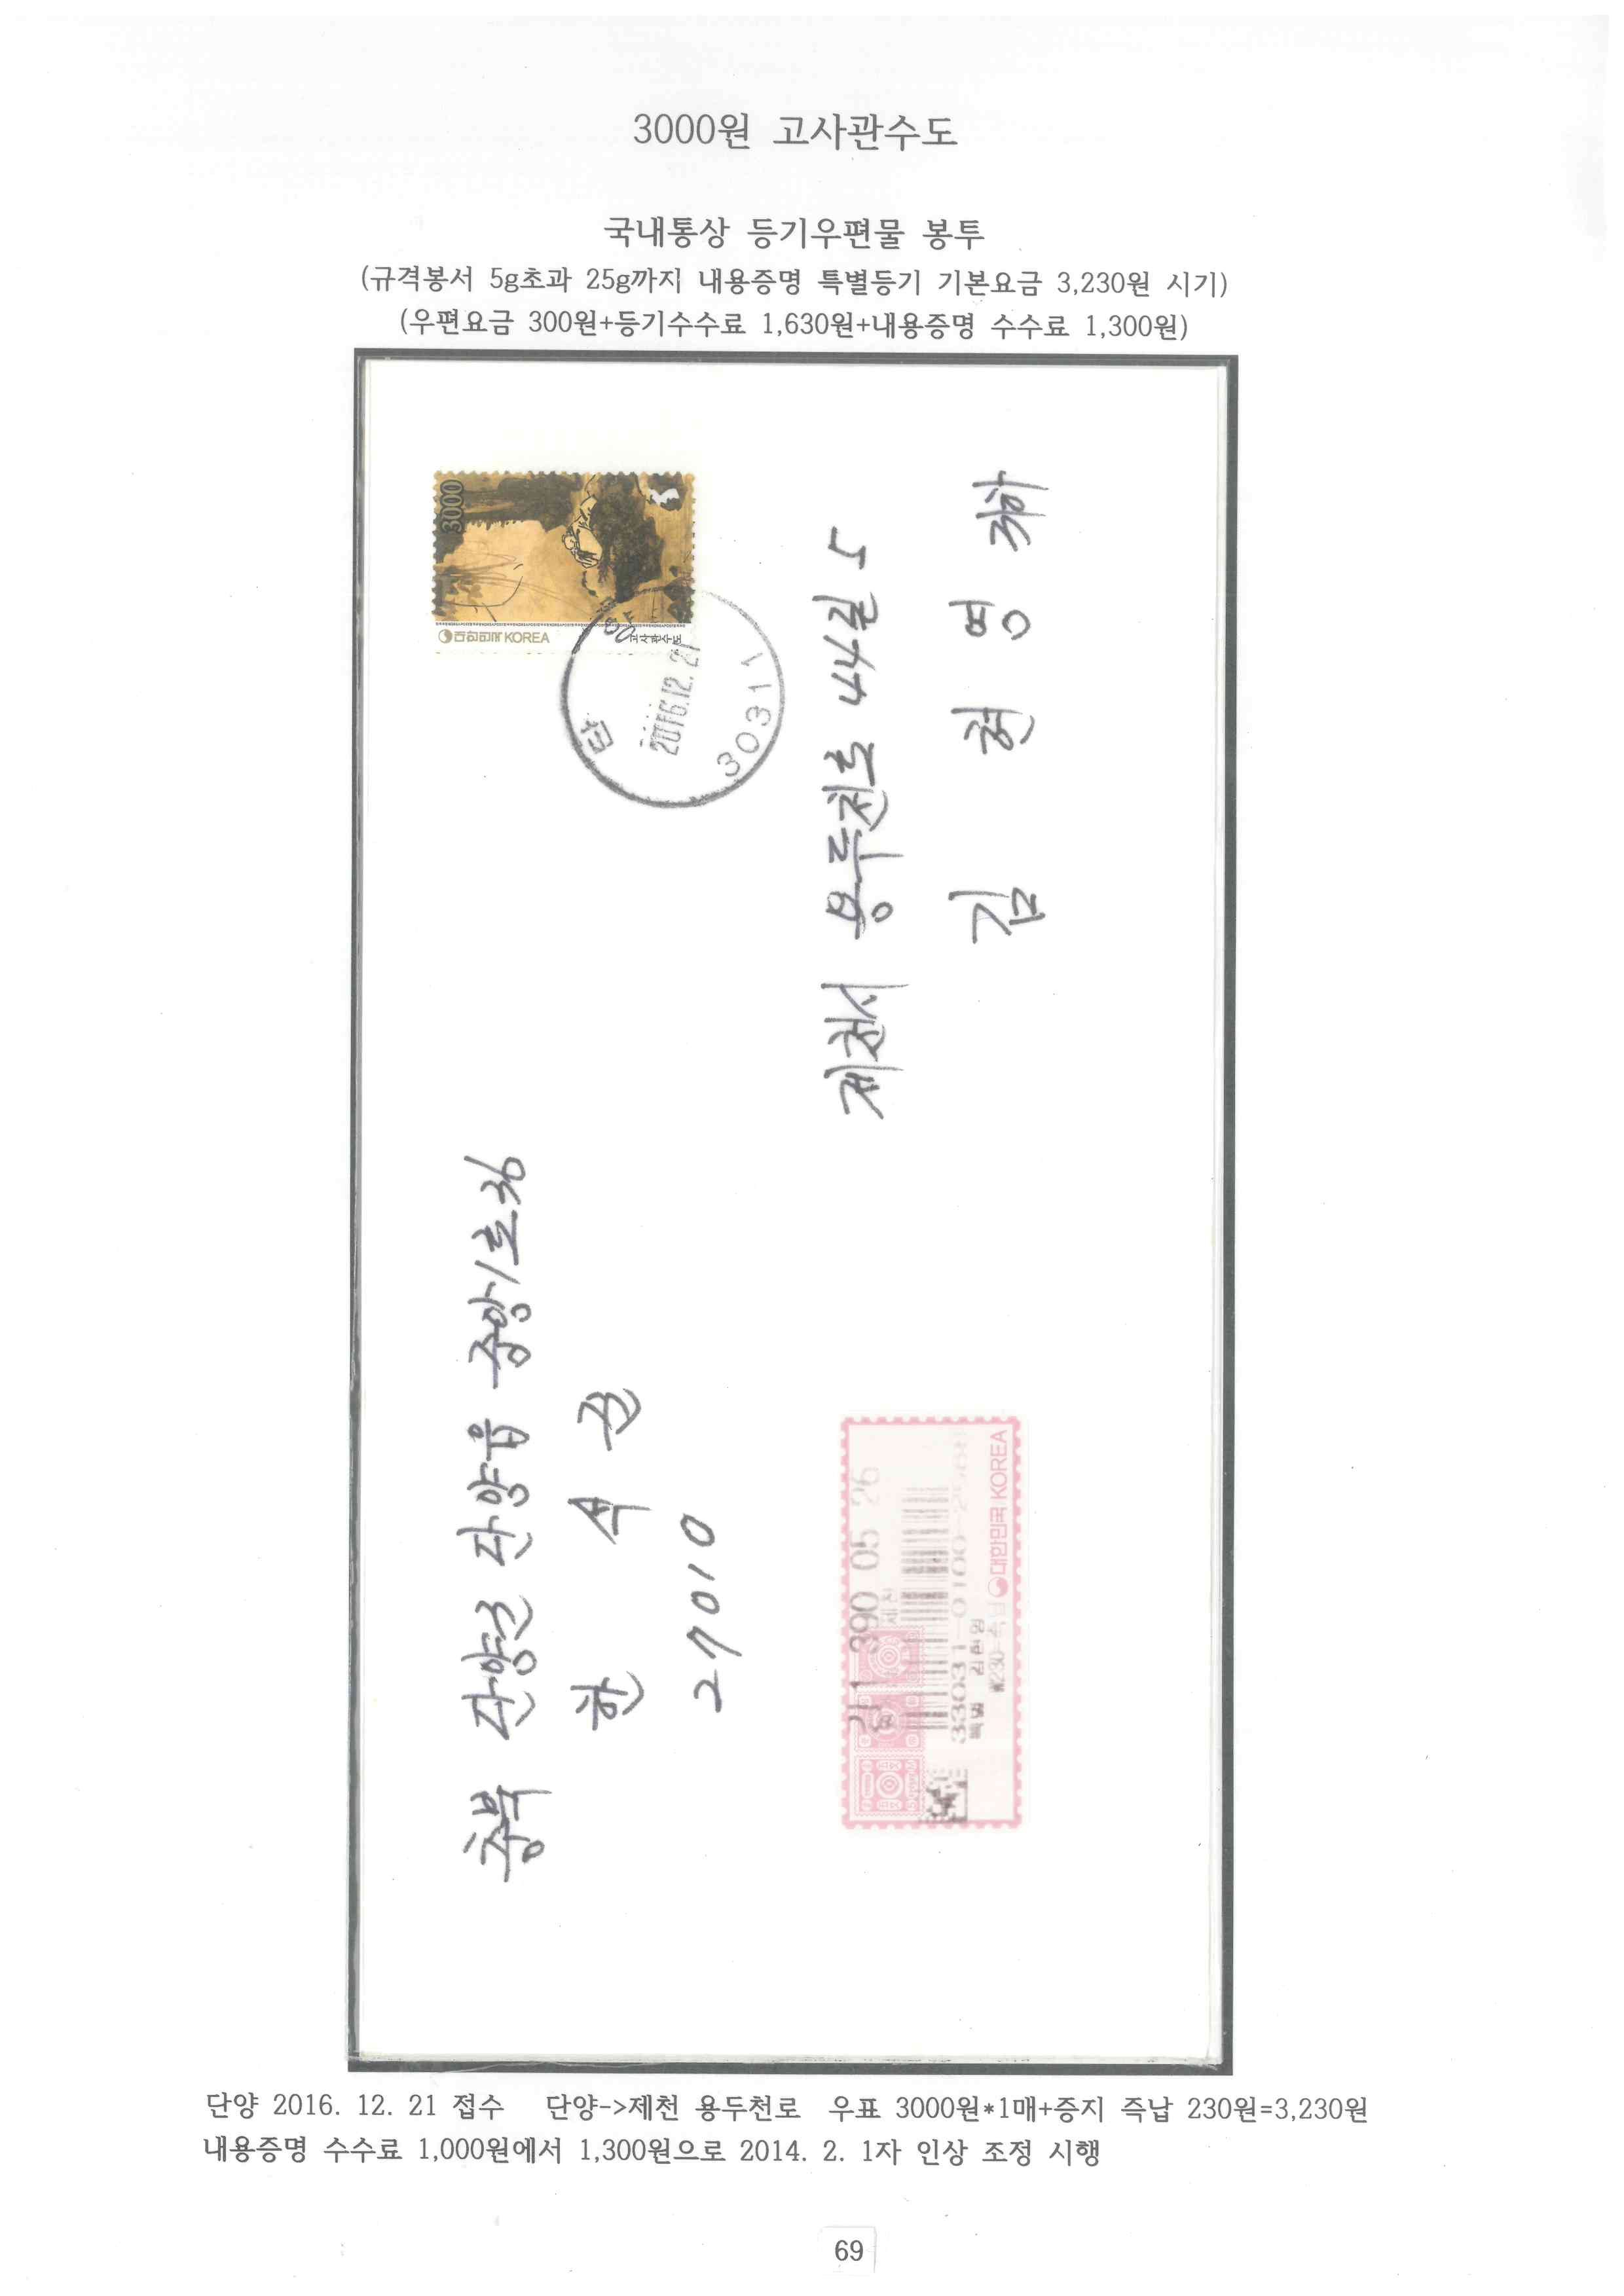 3000원 고사관수도
국내통상 등기우편물 봉투
(규격봉서 5g초과 25g까지 내용증명 특별등기 기본요금 3,230원 시기)
(우편요금 300원+등기수수료 1,630원+내용증명 수수료 1,300원)
충북 단양군 단양읍 중앙1로 36
한 석 
27010
3000
대한민국 KOREA
고사관수도
단
2016.12.21
30311
제천시 용두천로 44길 5
김 현 영 귀하
390 05 26
제천
33031-0100-
특별 김현영
₩230
대한민국 KOREA
단양 2016. 12. 21 접수 단양->제천 용두천로 우표 3000원*1매+증지 즉납 230원=3,230원
내용증명 수수료 1,000원에서 1,300원으로 2014. 2. 1자 인상 조정 시행
69